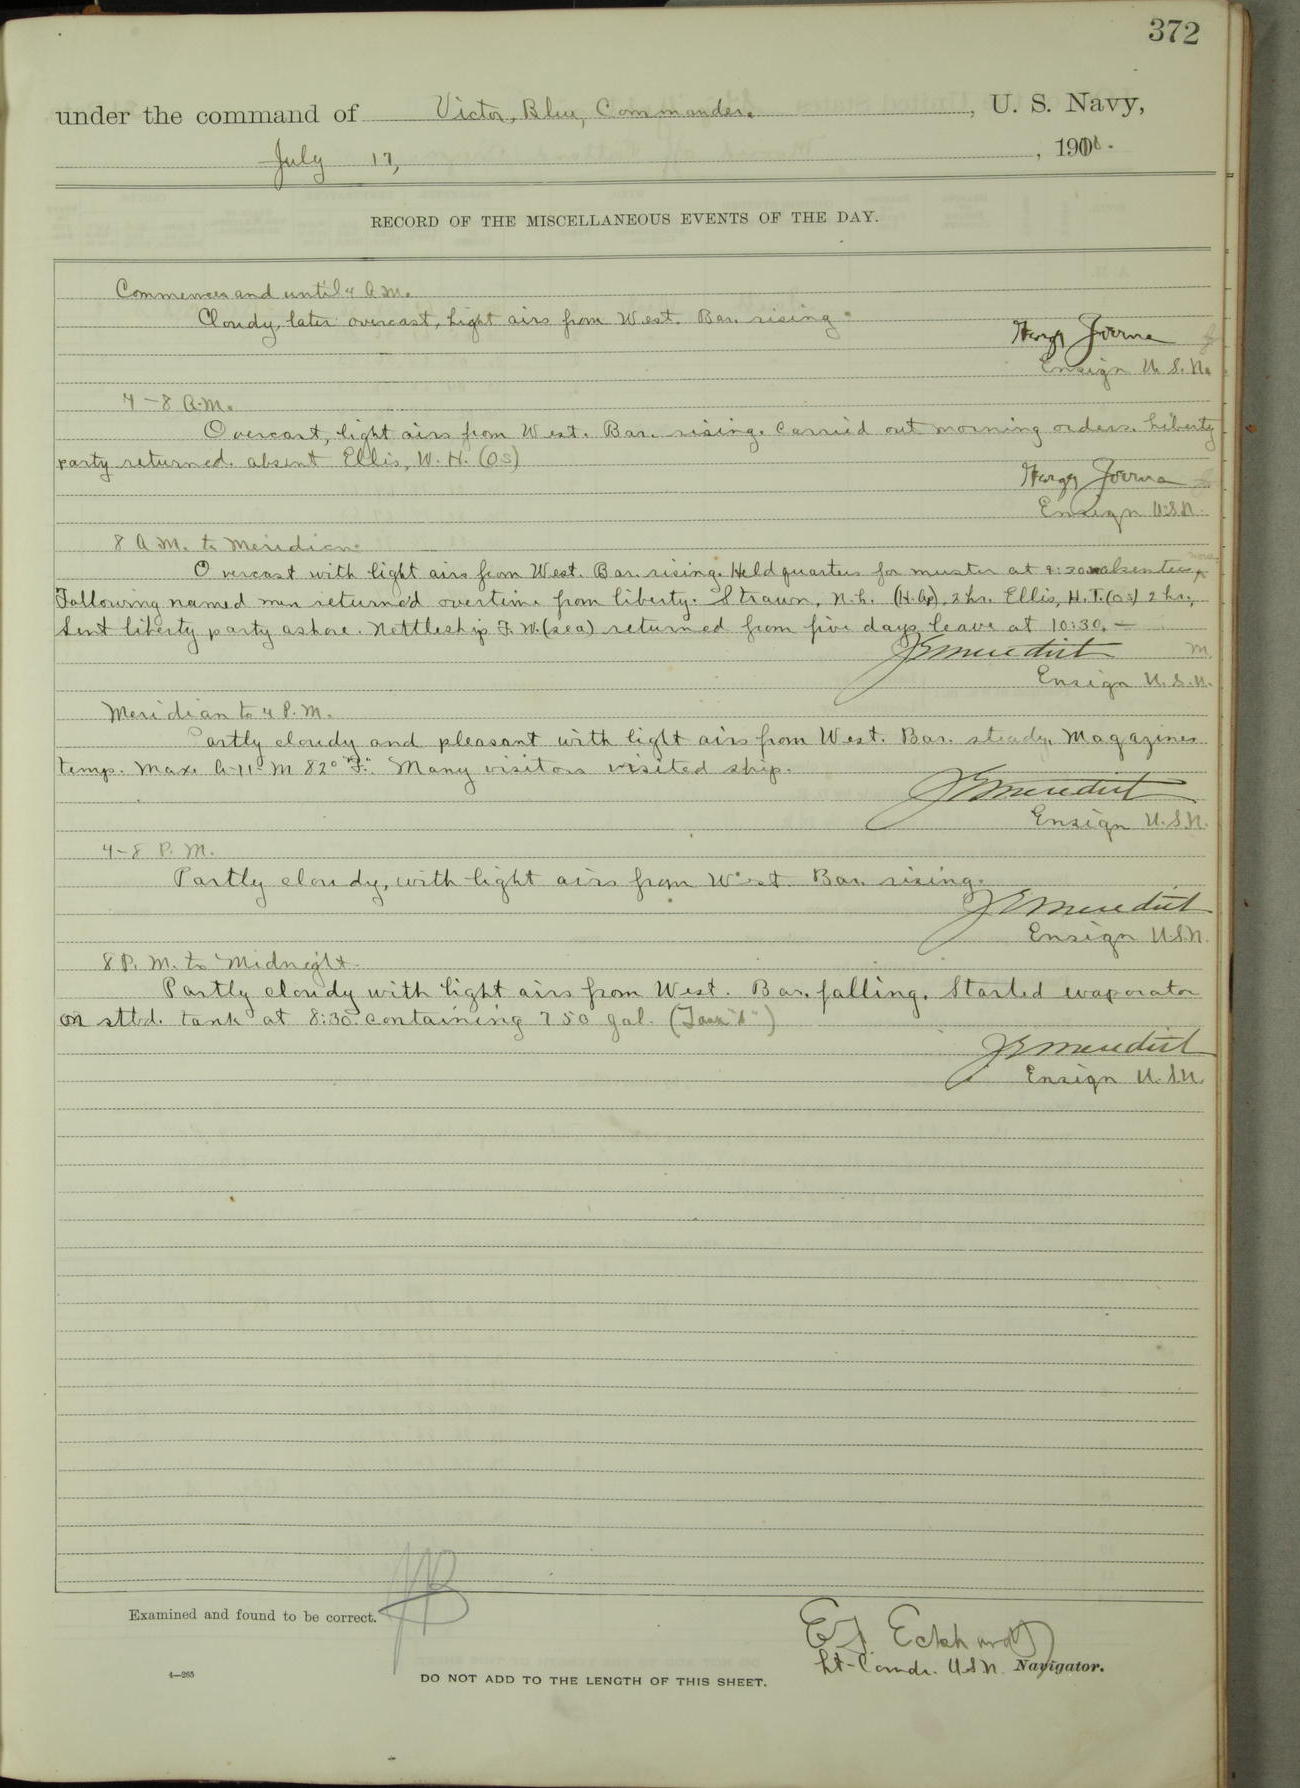 372
under the command of Victor, Blue, Commander. , U. S. Navy,
July 17, , 1910.
RECORD OF THE MISCELLANEOUS EVENTS OF THE DAY.
Commences and until 4 A.M.
Cloudy, later overcast, light airs from West. Bar. rising.
Ensign U. S. N.
4-8 A.M.
Overcast, light airs from West. Bar. rising. Carried out morning orders. Liberty
party returned. absent Ellis, W. H. (OS)
Ensign U.S.N.
8 A.M. to Meridian.
Overcast with light airs from West. Bar. rising. Held quarters for muster at 9:30 absentees none
Following named men returned overtime from liberty. Strawn, N.L. (H.A.), 2 hr. Ellis, H.T. (OS) 2 hr.,
Sent liberty party ashore. Nettleship F.W. (sea) returned from five days leave at 10:30. —
Ensign U.S.N.
Meridian to 4 P.M.
Partly cloudy and pleasant with light airs from West. Bar. steady. Magazines
temp. Max. A-11-M 82° "F." Many visitors visited ship.
Ensign U.S.N.
4-8 P.M.
Partly cloudy, with light airs from West. Bar. rising.
Ensign U.S.N.
8 P.M. to Midnight.
Partly cloudy with light airs from West. Bar. falling. Started evaporator
on stbd. tank at 8:30. containing 750 gal.
Ensign U.S.N.
Examined and found to be correct.
Eckhardt
Lt-Comdr. U.S.N. Navigator.
4—265
DO NOT ADD TO THE LENGTH OF THIS SHEET.